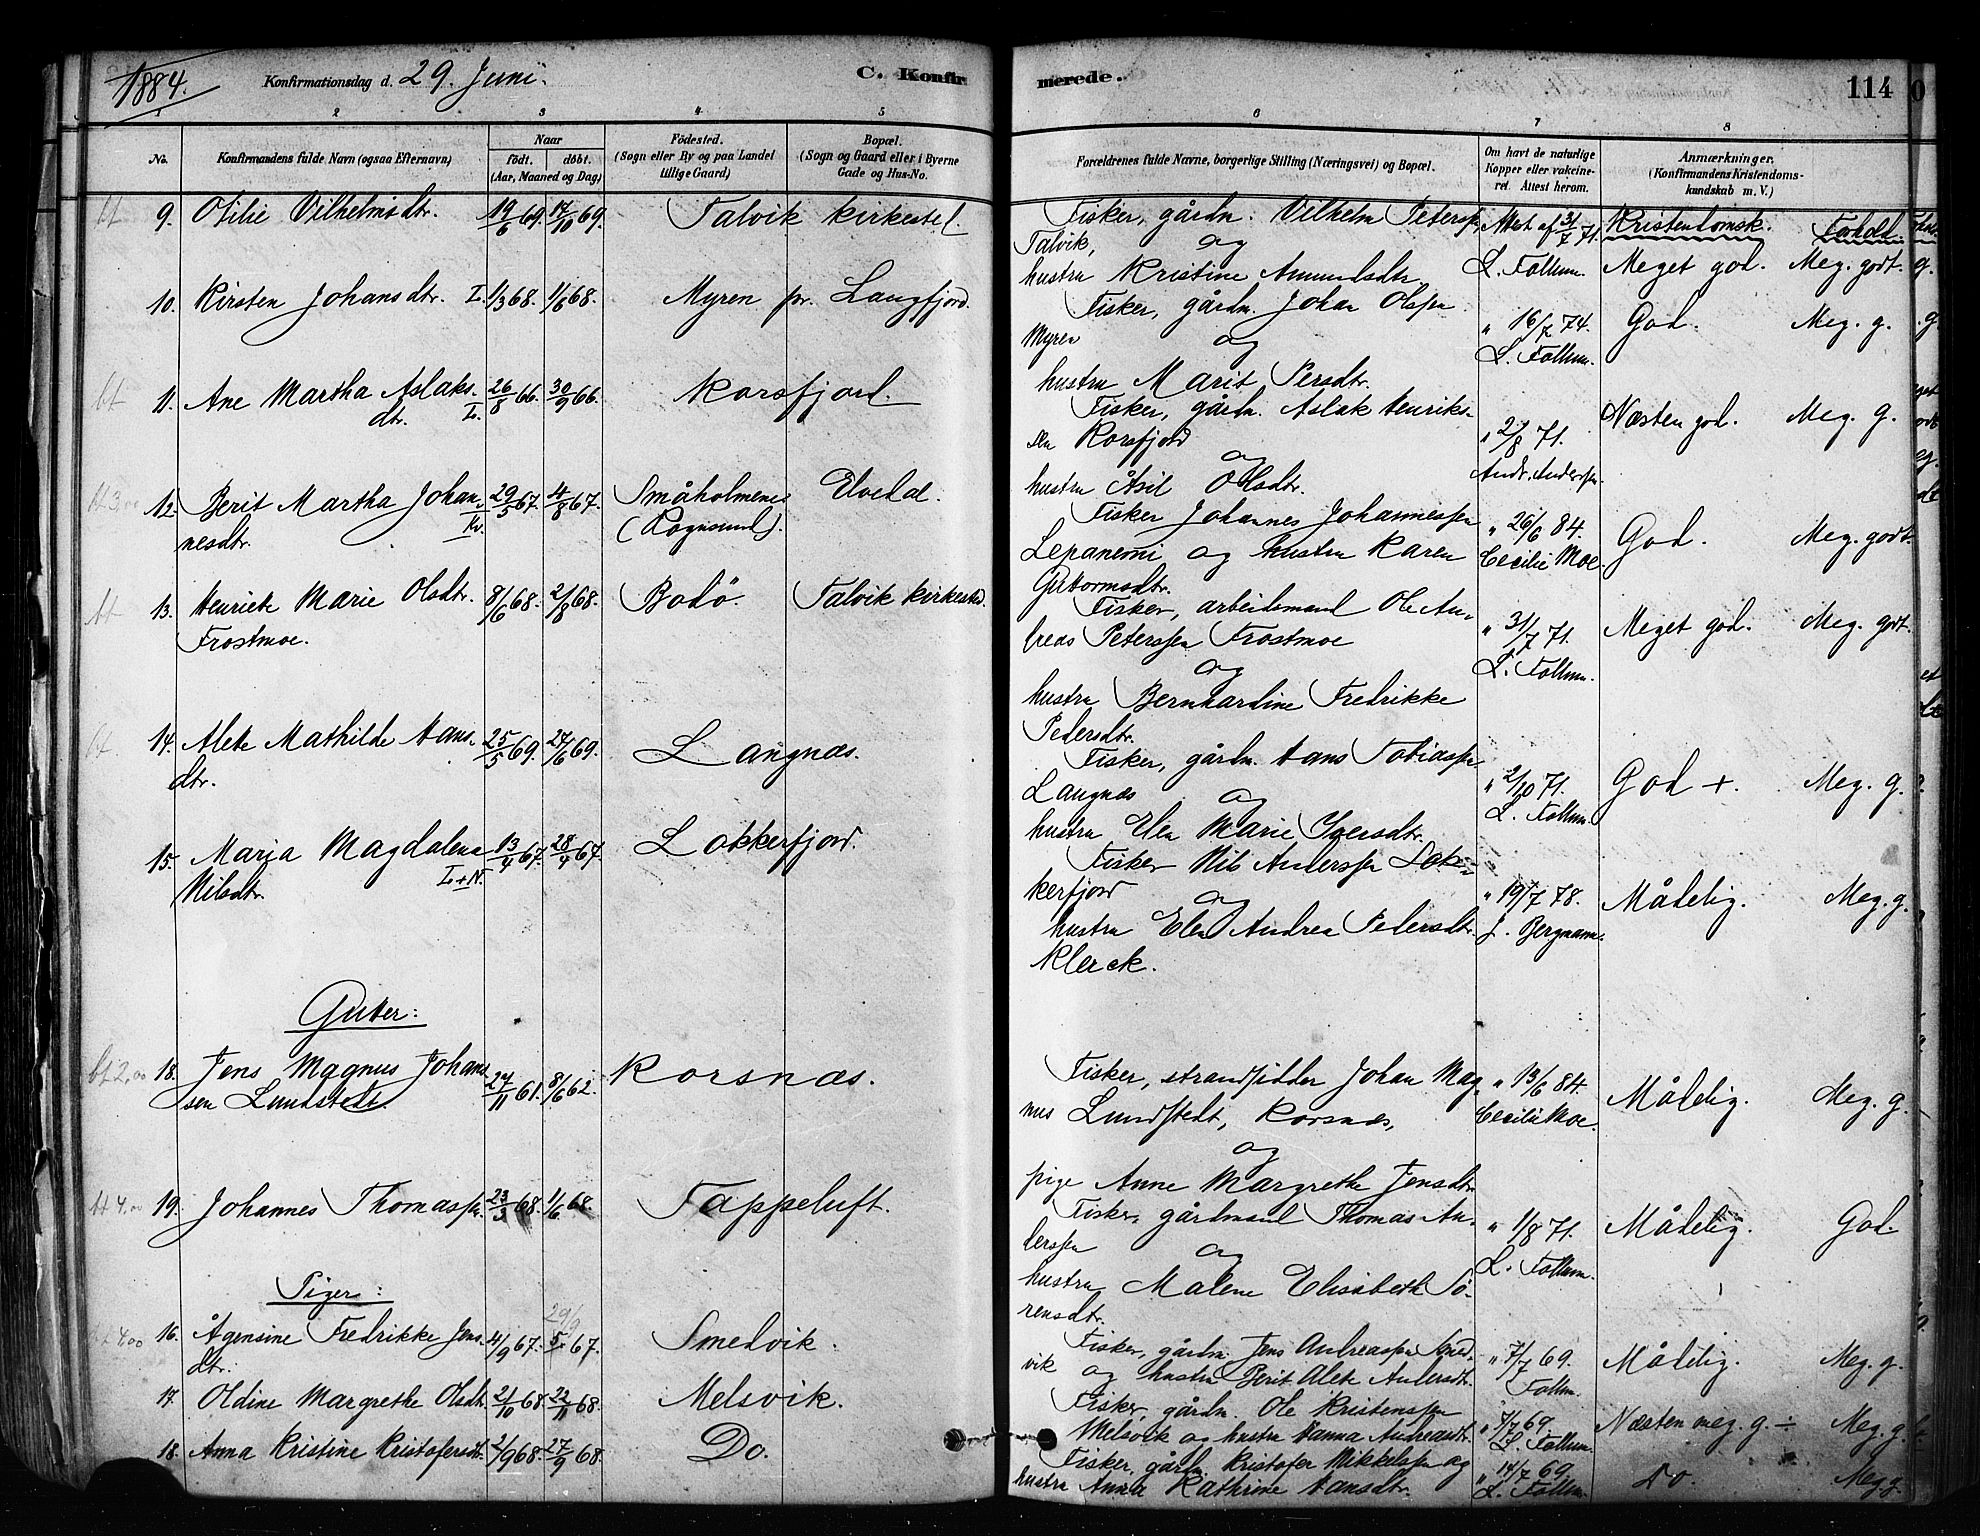 1884.
Konfirmationsdag d. 29. Juni.
C. Konfirmerede.
114
1 2 3 4 5 6 7 8
No.
Konfirmandens fulde Navn (ogsaa Efternavn)
Naar
født. døbt.
(Aar, Maaned og Dag)
Fødested.
(Sogn eller By og paa Landet
tillige Gaard)
Bopæl.
(Sogn og Gaard eller i Byerne
Gade og Hus-No.
Forældrenes fulde Navne, borgerlige Stilling (Næringsvei) og Bopæl.
Om havt de naturlige
Kopper eller vakcine-
ret. Attest herom.
Anmærkninger.
(Konfirmandens Kristendoms-
kundskab m. V.)
Kristendomsk. Forhold.
bt 9. Otilie Vilhelmsdtr. 19/6 69. 17/10 69. Talvik kirkested.
Fisker, gårdm. Vilhelm Peterssen
Talvik, og
hustru Kristine Amundsdtr
Attest af 31/7 71.
L. Follum. Meget god. Meg. godt.
10. Kirsten Johansdtr. L. 1/3 68. 1/6 68. Myren pr. Langfjord.
Fisker, gårdm. Johan Olssen
Myren og
hustru Marit Persdtr.
" 16/7 74.
L. Follum.
God. Meg. g.
bt 11. Ane Martha Aslaks-
dtr. L. 26/8 66. 30/9 66. Korsfjord.
Fisker, gårdm. Aslak Henriks-
sen Korsfjord
og
hustru Åsil Olsdtr.
" 2/8 71.
Andr. Anderssen.
Næsten god. Meg. g.
bt 3,00 12. Berit Martha Johan-
nesdtr. Kv. 29/5 67. 4/8 67. Småholmene
(Rognsund). Elvedal.
Fisker Johannes Johannessen
Lepanemi og hustru Karen
Guttormsdtr.
" 26/6 84.
Cecilie Moe.
God. Meg. godt.
bt 13. Henriete Marie Olsdtr.
Frostmoe. 8/6 68. 2/8 68. Bodø. Talvik kirkested.
Fisker, arbeidsmand Ole An-
dreas Peterssen Frostmoe
og
hustru Bernhardine Fredrikke
Pedersdtr.
" 31/7 71.
L. Follum.
Meget god. Meg. godt.
bt. 14. Alete Mathilde Hans-
dtr. 25/5 69. 27/6 69. Langnæs.
Fisker, gårdm. Hans Tobiassen
Langnæs og
hustru Elen Marie Iversdtr.
" 2/10 71.
L. Follum.
God +. Meg. g.
15. Marja Magdalena
Nilsdtr. L+N. 13/4 67. 28/4 67. Lokkerfjord.
Fisker Nils Anderssen Lok-
kerfjord og
hustru Elen Andrea Petersdtr.
Klerck.
" 19/7 78.
J. Bergmann.
Mådelig. Meg. g.
Gutter:
bt 2,00 18. Jens Magnus Johans-
sen Lundstedt. 27/11 61. 8/6 62. Korsnæs.
Fisker, strandsidder Johan Mag-
nus Lundstedt, Korsnæs,
og
pige Anne Margrethe Jensdtr.
" 13/6 84.
Cecilie Moe.
Mådelig. Meg. g.
bt 4,00 19. Johannes Thomassen. 23/3 68. 1/6 68. Tappeluft.
Fisker, gårdmand Thomas An-
derssen og
hustru Malene Elisabeth Sö-
rensdtr.
" 1/8 71.
L. Follum.
Mådelig. God.
Piger:
bt 4,00 16. Ågensine Fredrikke Jens-
dtr. 4/9 67. 29/9 67. Smedvik.
Fisker, gårdm. Jens Andreassen Smed-
vik og hustru Berit Alete Andersdtr.
" 7/7 69.
Follum.
Mådelig. Meg. g.
17. Oldine Margrethe Olsdtr. 21/10 68. 22/11 68. Melsvik.
Fisker, gårdm. Ole Kristenssen
Melsvik og hustru Hanna Andreasdtr.
" 7/7 69.
L. Follum.
Næsten meg. g. ÷ Meg. g.
18. Anna Kristine Kristofersdtr. 2/9 68. 27/9 68. Do.
Fisker, gårdm. Kristofer Mikkelsen og
hustru Anna Kathrine Hansdtr.
" 14/7 69.
L. Follum.
Do. Meg. g.